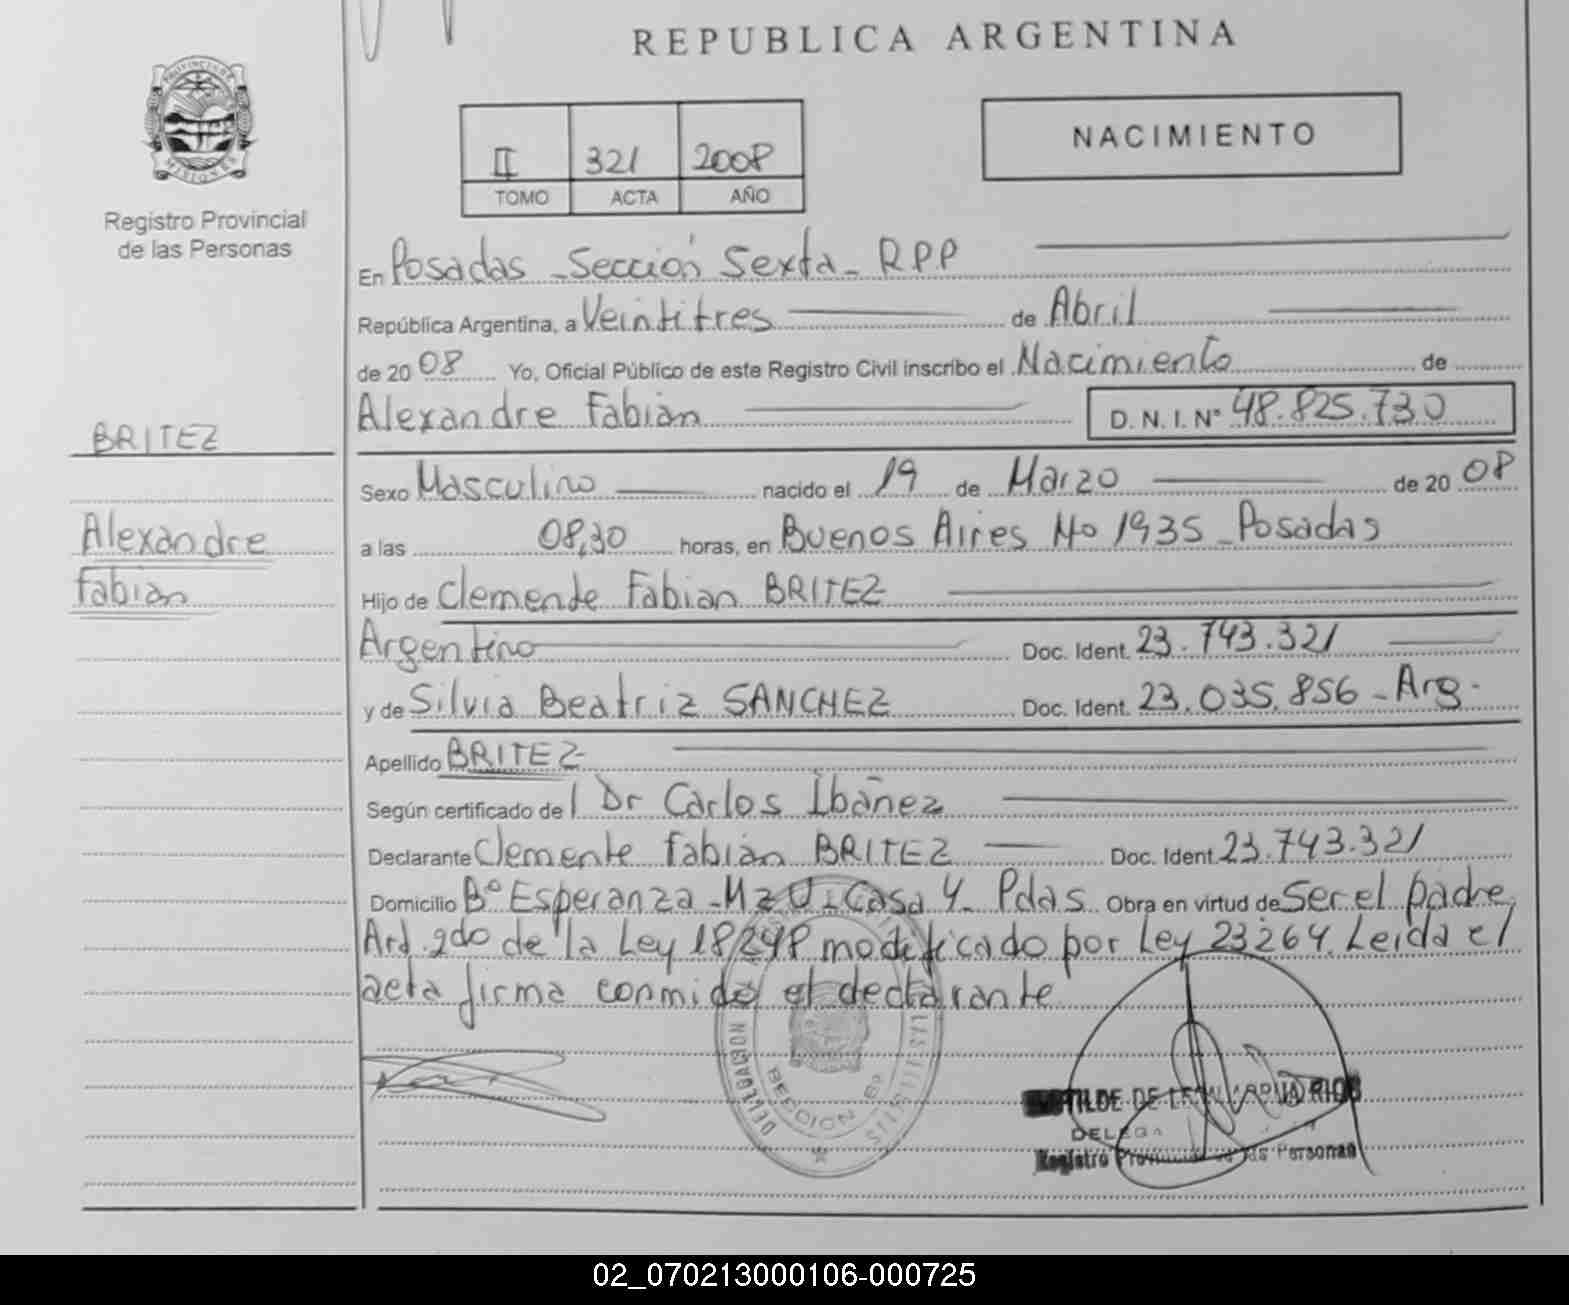 REPUBLICA ARGENTINA
PROVINCIA DE
MISIONES
Registro Provincial
de las Personas
II 321 2008
TOMO ACTA AÑO
NACIMIENTO
En Posadas - Sección Sexta - RPP
República Argentina, a Veintitres de Abril
de 2008 Yo, Oficial Público de este Registro Civil inscribo el Nacimiento de
Alexandre Fabian D. N. I. N° 48.825.730
BRITEZ
Alexandre
Fabian
Sexo Masculino nacido el 19 de Marzo de 2008
a las 08,30 horas, en Buenos Aires No 1935 - Posadas
Hijo de Clemende Fabian BRITEZ
Argentino Doc. Ident. 23.743.321
y de Silvia Beatriz SANCHEZ Doc. Ident. 23.035.856 - Arg.
Apellido BRITEZ
Según certificado del Dr Carlos Ibañez
Declarante Clemente Fabian BRITEZ Doc. Ident. 23.743.321
Domicilio B° Esperanza - Mz U - Casa 4 - Pdas Obra en virtud de Ser el padre
Art. 2do de la Ley 18248 modificado por Ley 23264. Leida el
acta firma conmido el declarante
DELEGACION
SECCION 6ª
DE
RIOS
Registro Personas
02_070213000106-000725